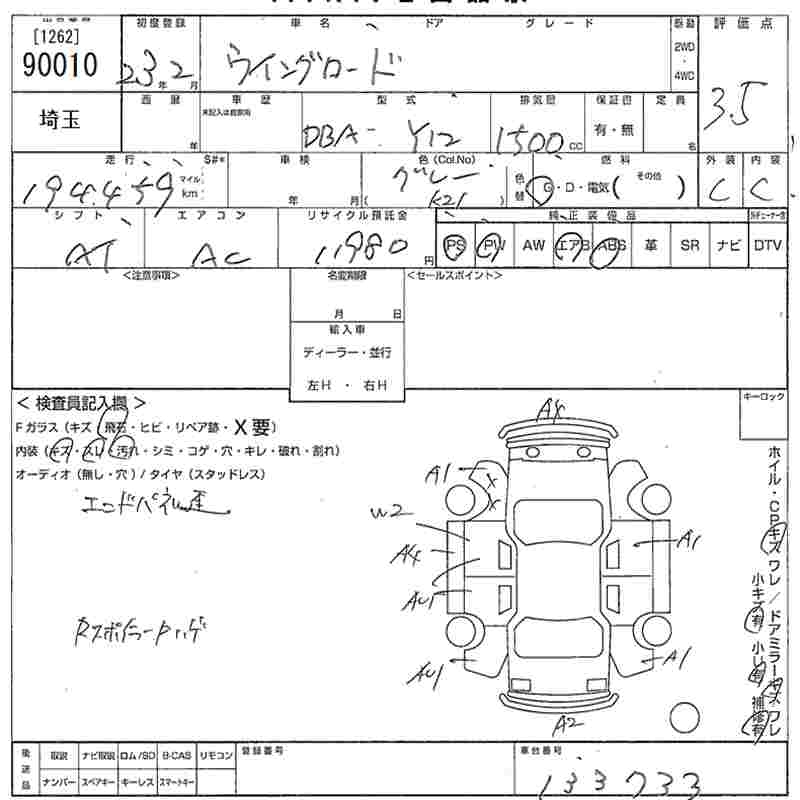 [1262]
90010
埼玉
初度登録
23年2月
車名
ウイングロード
ドア
グレード
駆動
2WD
・
4WC
評価点
3.5
西暦
年
車歴
未記入は自家用
型式
DBA- Y12
排気量
1500 CC
保証書
有・無
定員
名
走行
S#*
194,459
マイル
km
車検
年 月
色(Col.No)
グレー
( K21 )
色替
燃料
G・D・電気( その他 )
外装
C
内装
C
シフト
AT
エアコン
AC
リサイクル預託金
11980 円
純正装備品
PS PW AW エアB ABS 革 SR ナビ DTV
<注意事項>
名変期限
月 日
輸入車
ディーラー・並行
左H ・ 右H
<セールスポイント>
<検査員記入欄>
キーロック
Fガラス(キズ・飛石・ヒビ・リペア跡・X要)
内装(キズ・スレ・汚れ・シミ・コゲ・穴・キレ・破れ・割れ)
オーディオ(無し・穴)/タイヤ(スタッドレス)
エンドパネル歪
Rスポイラーハゲ
A4
A1
X
X
W2
A4
AU1
AU1
A1
A1
A2
ホイル・CPキズワレ/ドアミラーキズワレ
小キズ有 小U有 補修有
後送品
取説 ナビ取説 ロム/SD B-CAS リモコン
ナンバー スペアキー キーレス スマートキー
登録番号
車台番号
133733